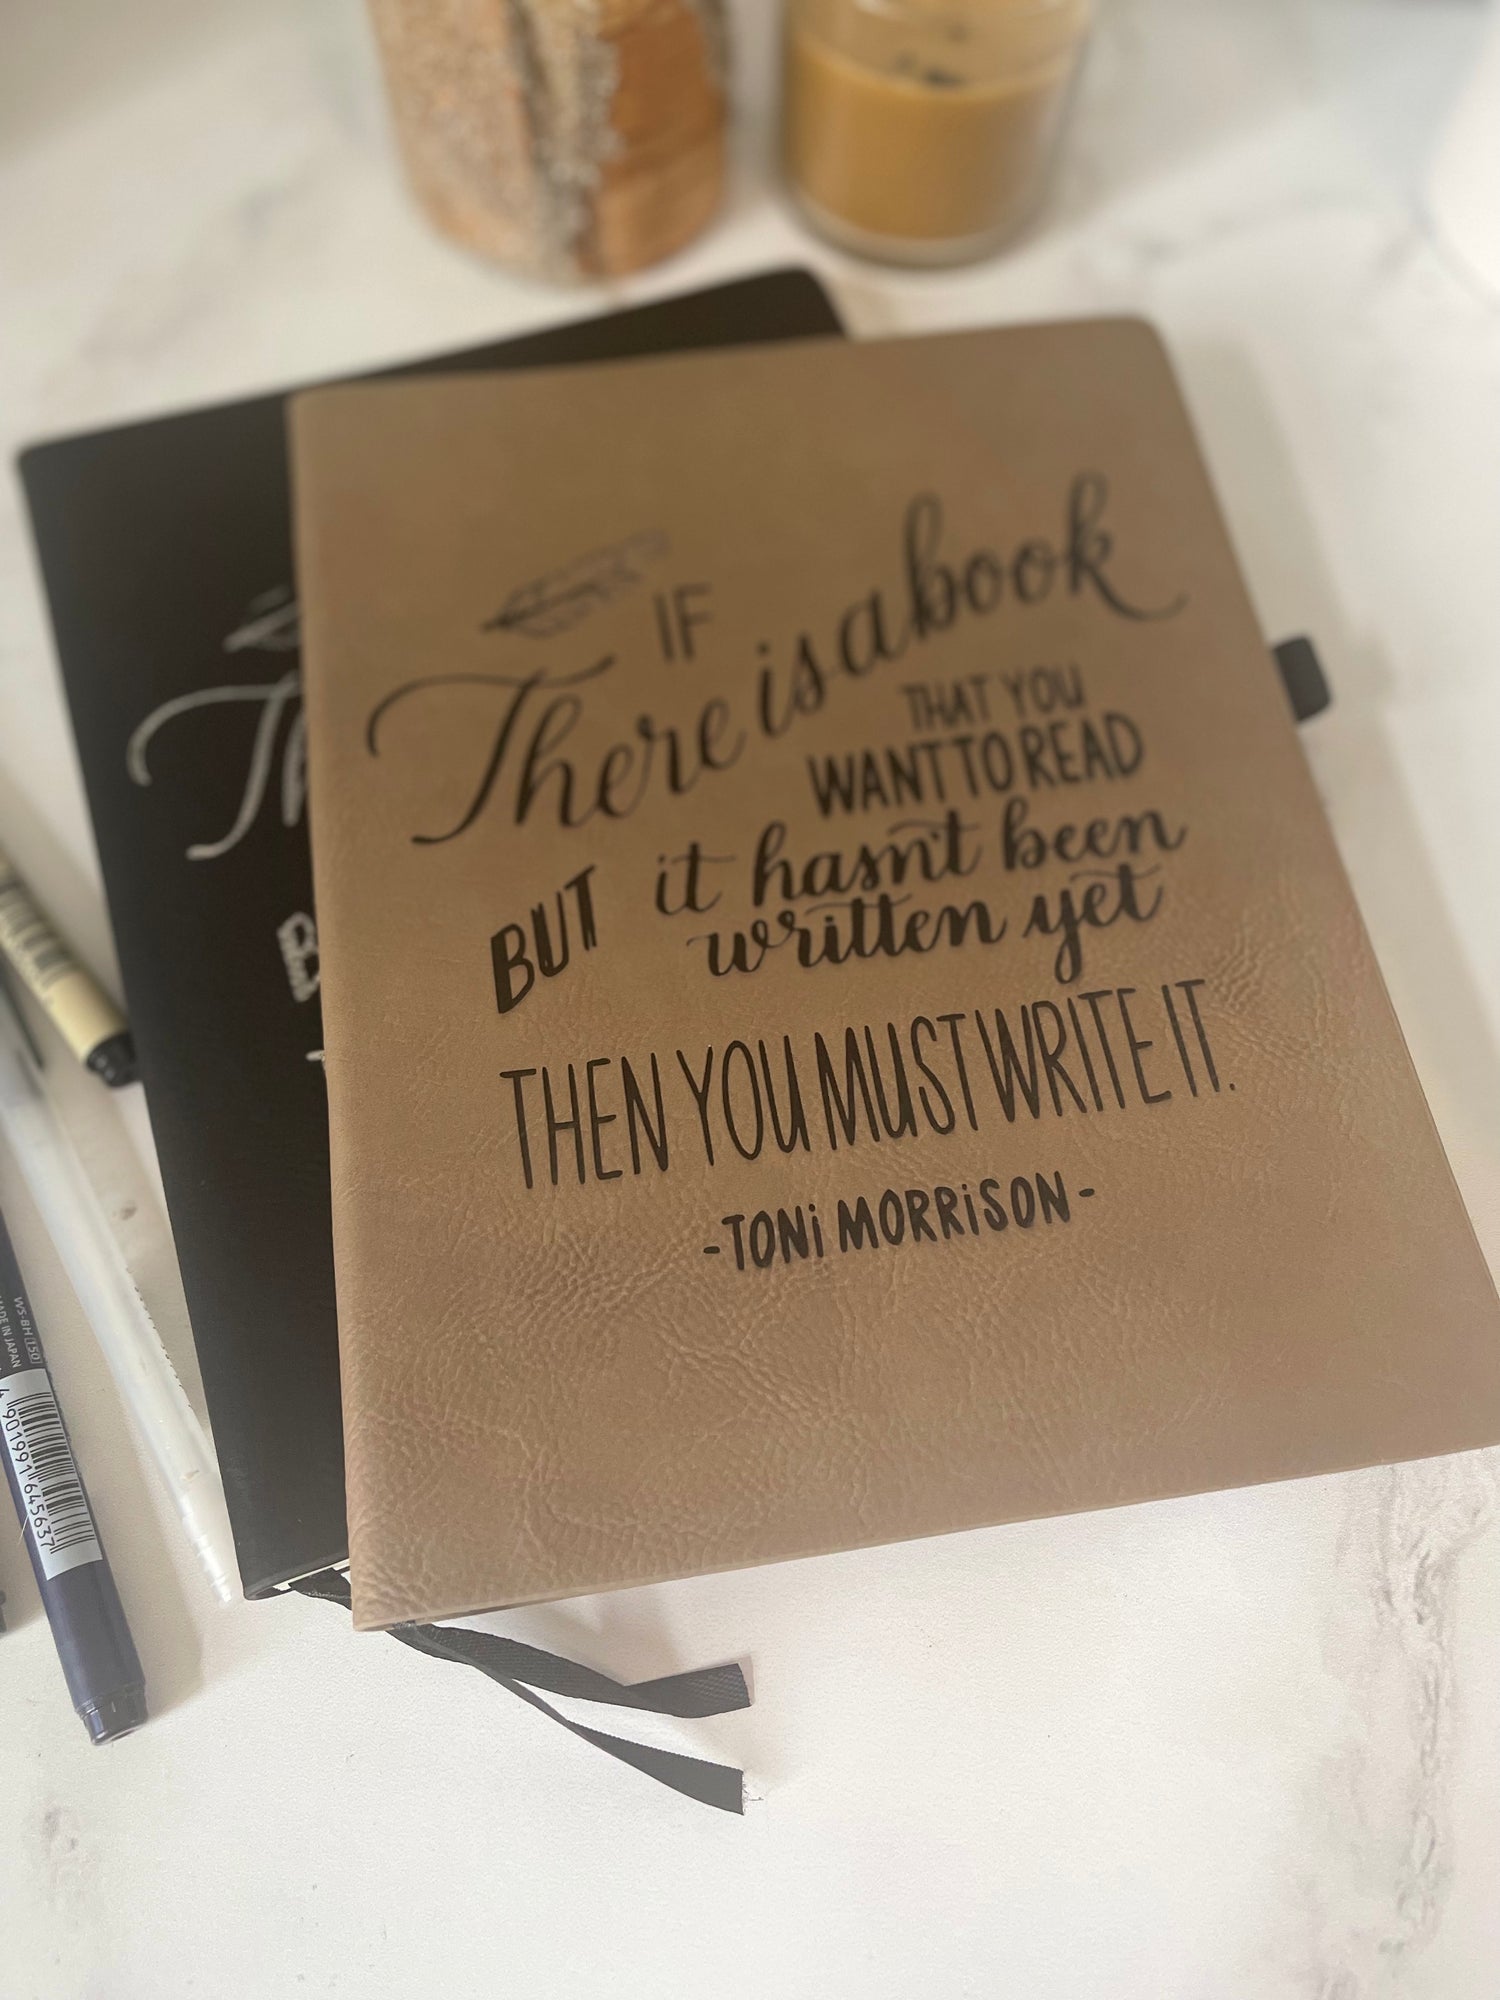 IF
There is a book
THAT YOU
WANT TO READ
BUT it hasn't been
written yet
THEN YOU MUST WRITE IT.
-TONi MORRiSON-
WS-BH 150
MADE IN JAPAN
4 901991 645637